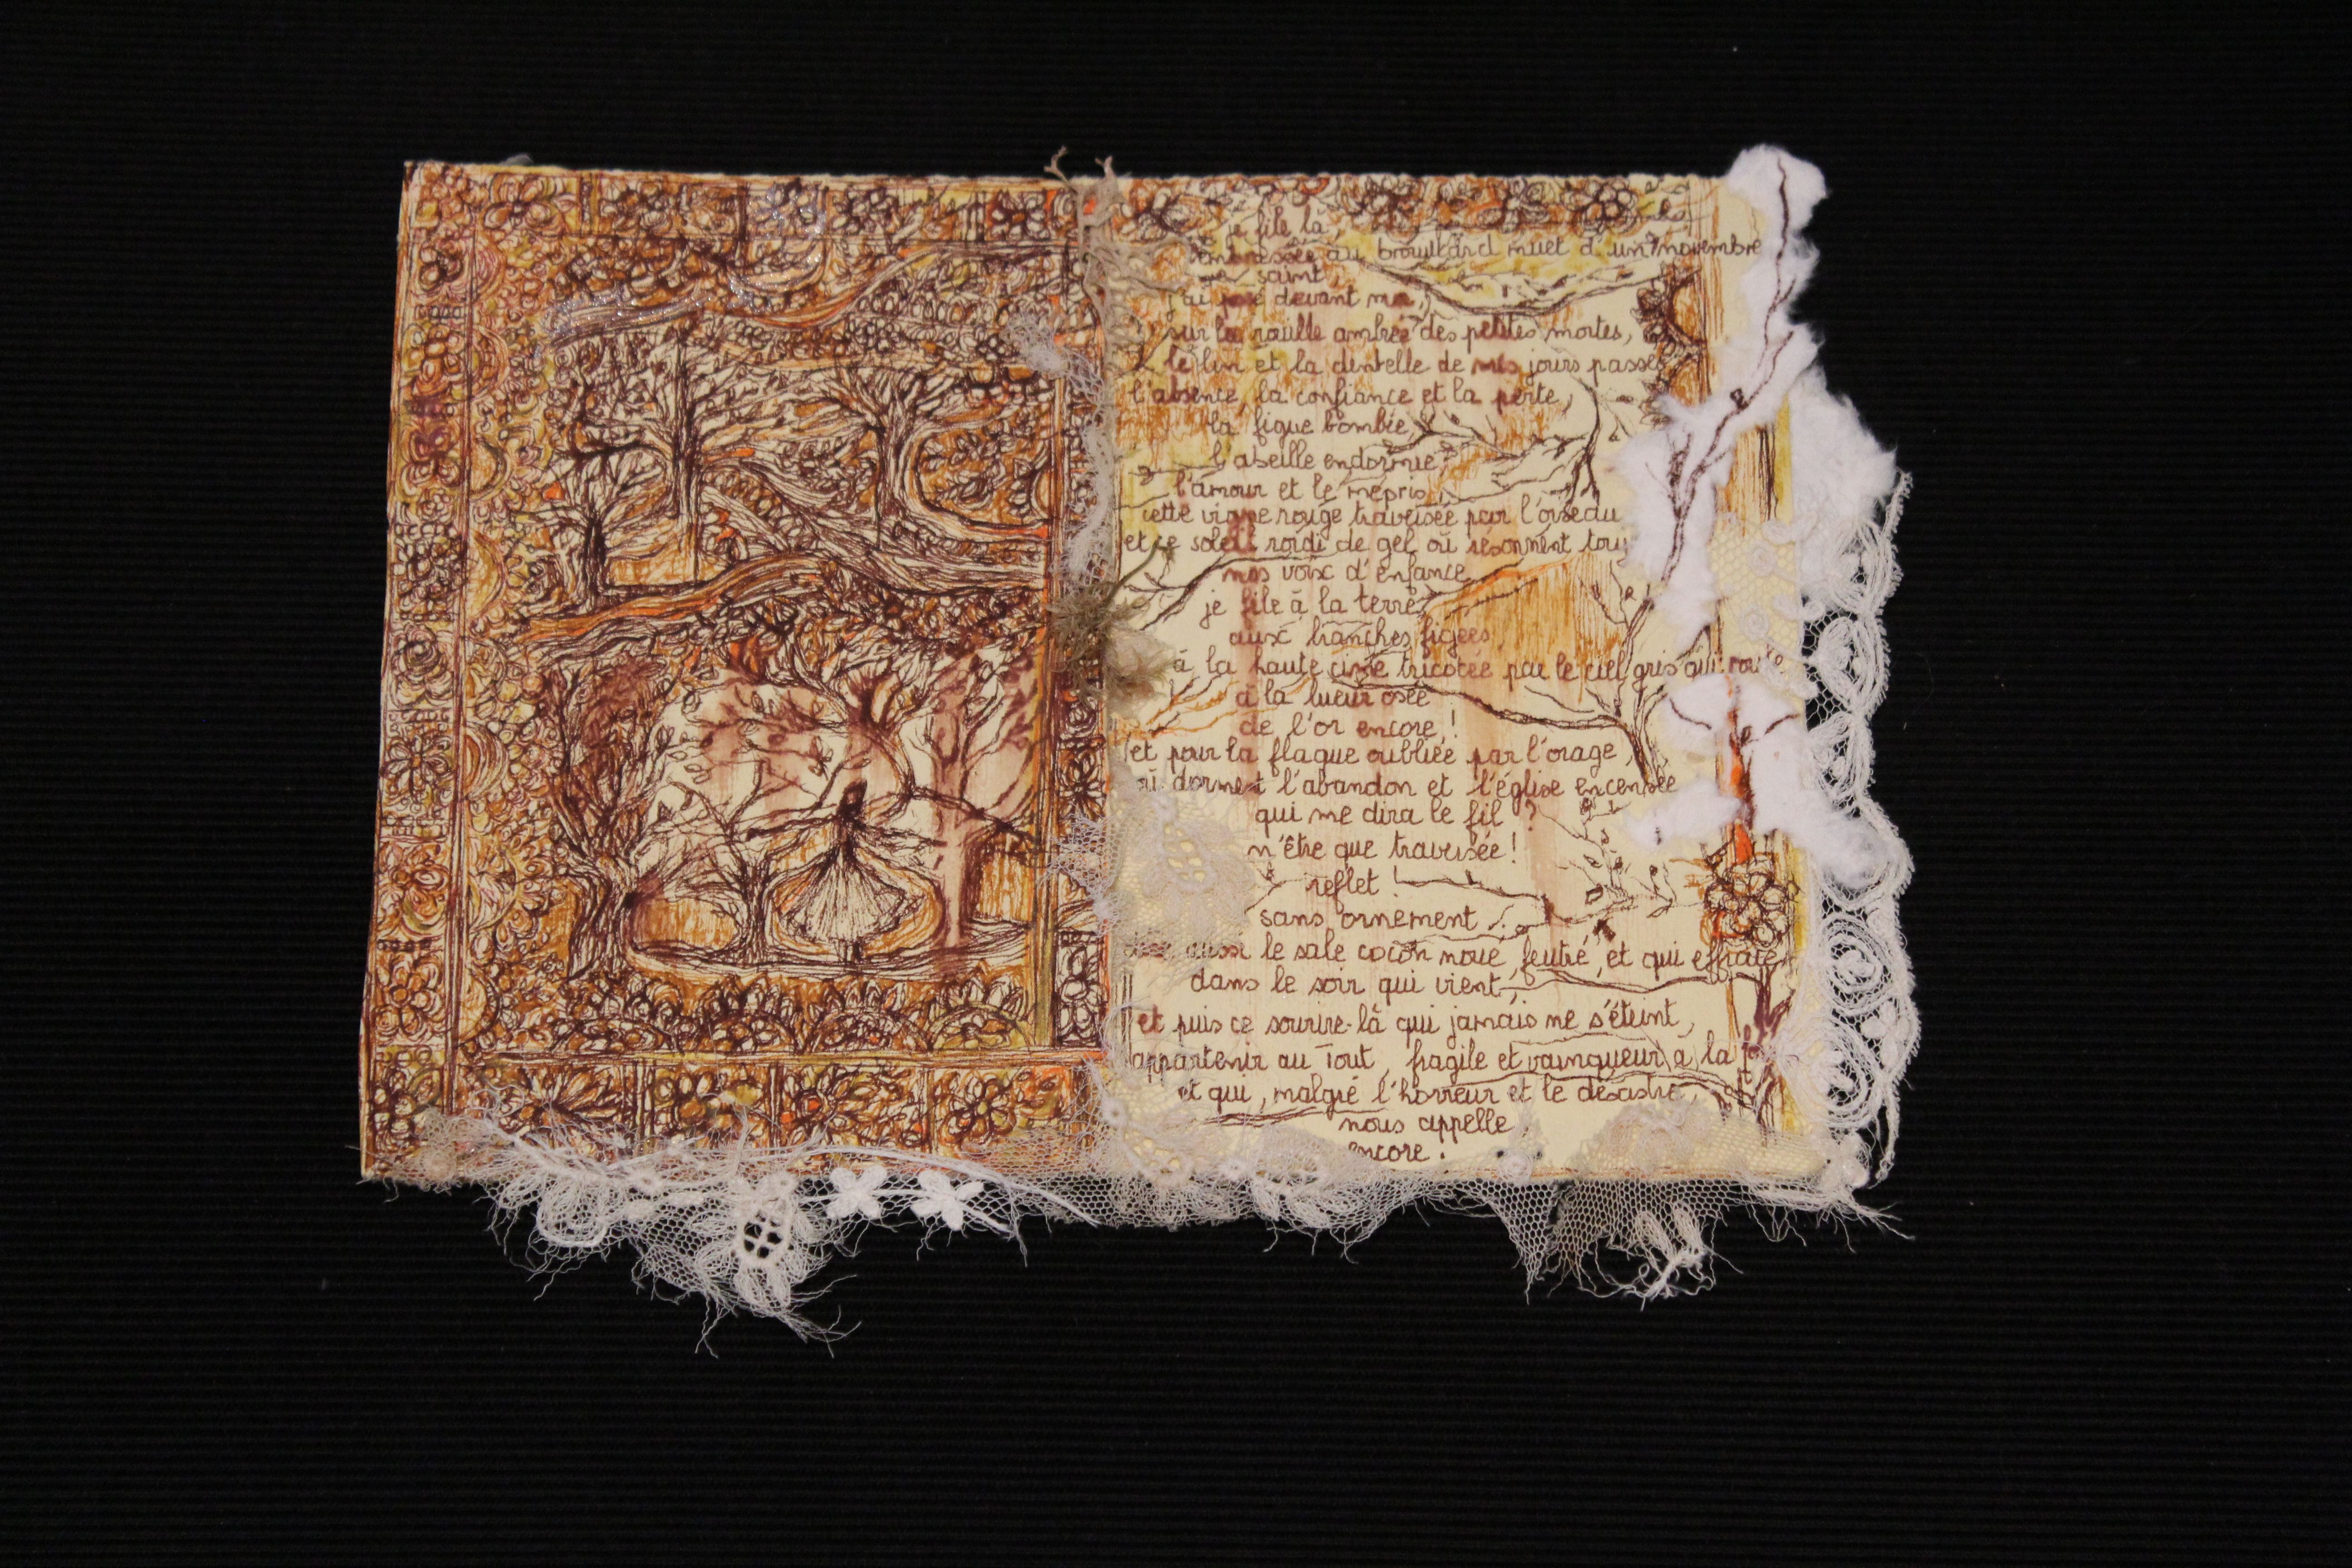 je file là,
embrassée au brouillard muet d'un novembre
saint,
j'ai posé devant moi,
sur la rouille ambrée des petites mortes,
le lin et la dentelle de mes jours passés
l'absente, la confiance et la perte,
la figue bombée,
l'abeille endormie,
l'amour et le mépris,
cette vigne rouge traversée par l'oiseau
et ce soleil roidi de gel où résonnent tou
mes voix d'enfance
je file à la terre,
aux branches figées,
à la haute cime tricotée par le ciel gris qui
à la lueur osée
de l'or encore !
et pour la flaque oubliée par l'orage,
où dorment l'abandon et l'église encensée
qui me dira le fil ?
n'être que traversée !
reflet !
sans ornement.
aussi le sale cocon noue feutré, et qui efface,
dans le soir qui vient,
et puis ce sourire-là qui jamais ne s'éteint,
appartenir au Tout, fragile et vainqueur à la
et qui, malgré l'horreur et le désastre,
nous appelle
encore.